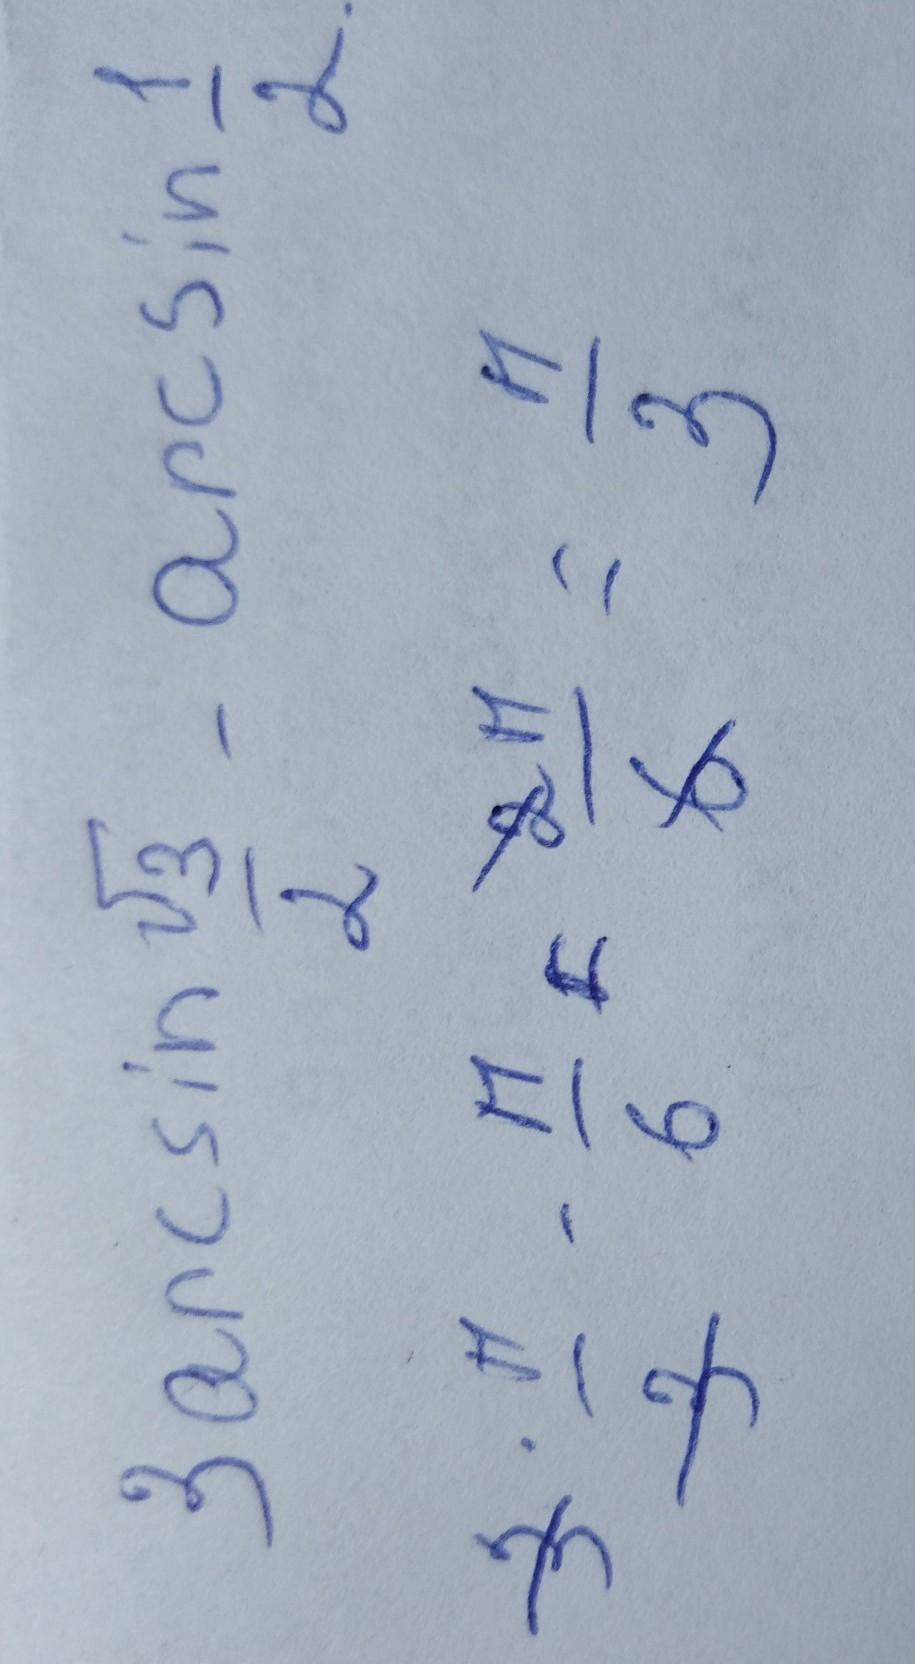 3 arcsin √3/2 - arcsin 1/2.
3 · π/3 - π/6 = 2π/6 = π/3